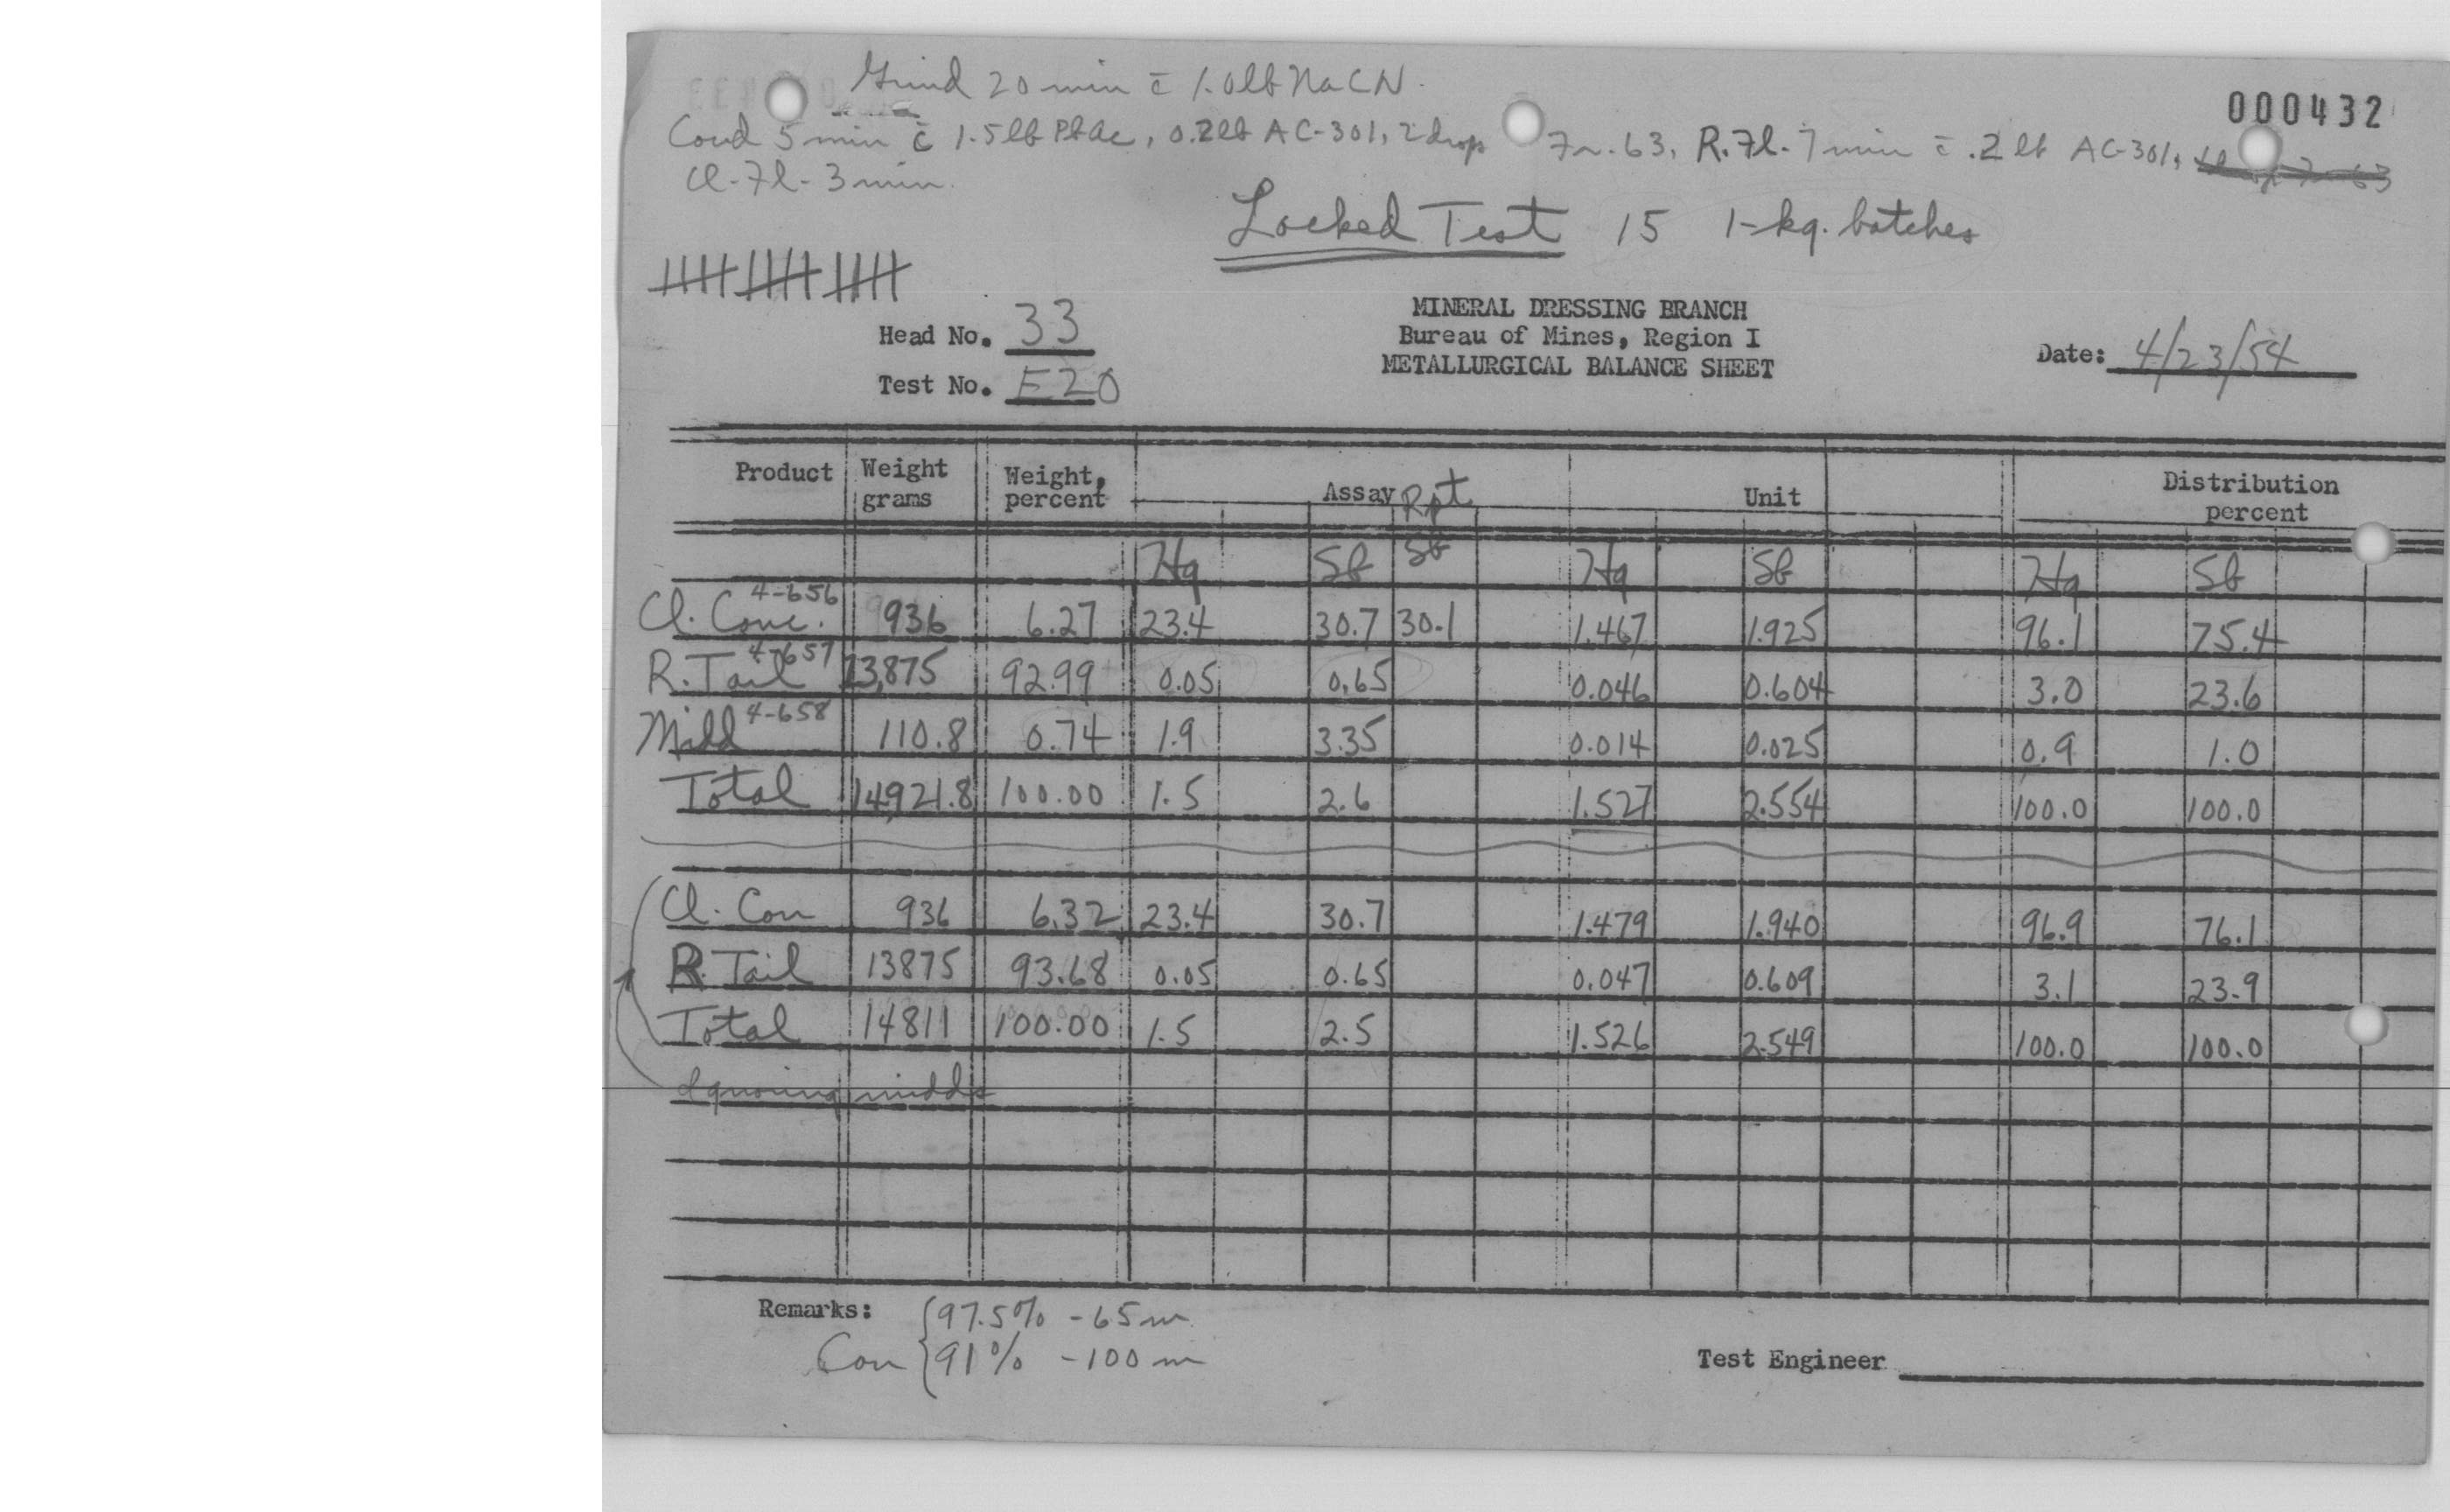 Grind 20 min c̄ 1.0 lb NaCN.
000432
Cond 5 min c̄ 1.5 lb PbAc, 0.2 lb AC-301, 2 drop Fr. 63, R.Fl. 7 min c̄ .2 lb AC-301,
Cl-Fl-3 min.
Locked Test 15 1-kg. batches
MINERAL DRESSING BRANCH
Head No. 33 Bureau of Mines, Region I Date: 4/23/54
Test No. E20 METALLURGICAL BALANCE SHEET
Product Weight grams Weight, percent Assay Rpt Unit Distribution percent
Hg Sb Sb Hg Sb Hg Sb
Cl. Conc. 4-656 936 6.27 23.4 30.7 30.1 1.467 1.925 96.1 75.4
R. Tail 4-657 13,875 92.99 0.05 0.65 0.046 0.604 3.0 23.6
Midd 4-658 110.8 0.74 1.9 3.35 0.014 0.025 0.9 1.0
Total 14,921.8 100.00 1.5 2.6 1.527 2.554 100.0 100.0
Cl. Con 936 6.32 23.4 30.7 1.479 1.940 96.9 76.1
R. Tail 13875 93.68 0.05 0.65 0.047 0.609 3.1 23.9
Total 14811 100.00 1.5 2.5 1.526 2.549 100.0 100.0
Ignoring midds
Remarks: 97.5% -65m
Con 91% -100m
Test Engineer